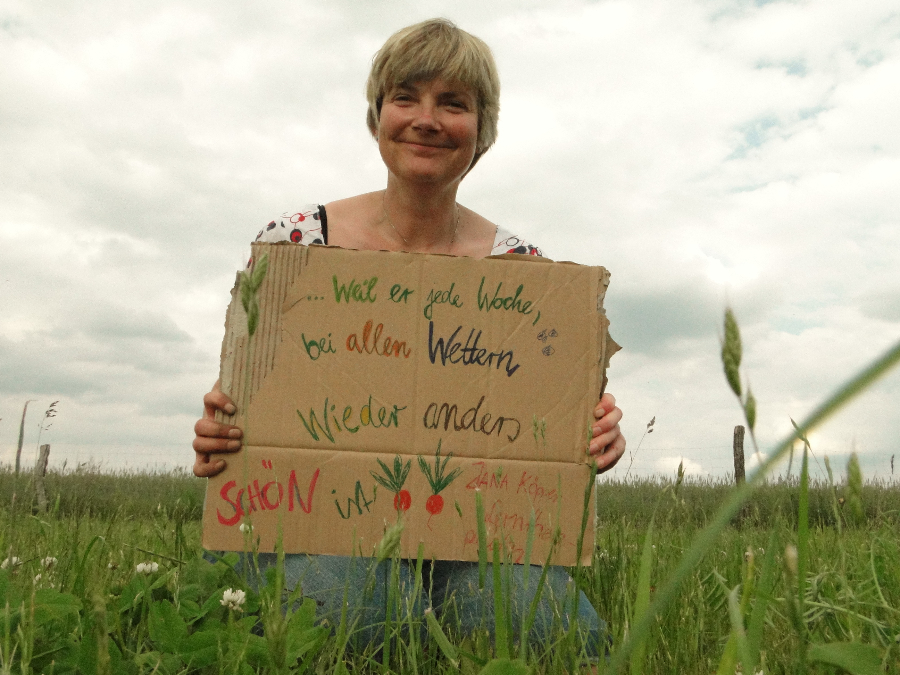 ... Weil er jede Woche,
bei allen Wettern
Wieder anders
SCHÖN ist
JANA